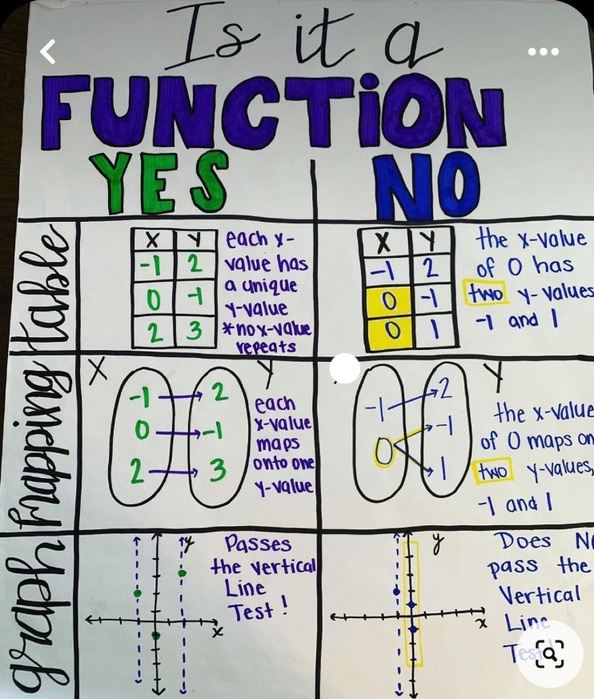 Is it a
FUNCTION
YES
NO
table
X Y
-1 2
0 -1
2 3
each x-
value has
a unique
y-value
*no x-value
repeats
X Y
-1 2
0 -1
0 1
the x-value
of 0 has
two y-values
-1 and 1
mapping
X
Y
-1 2
0 -1
2 3
each
x-value
maps
onto one
y-value
Y
-1 2
0 -1
1
the x-value
of 0 maps on
two y-values,
-1 and 1
graph
y
x
Passes
the vertical
Line
Test!
y
x
Does
pass the
Vertical
Line